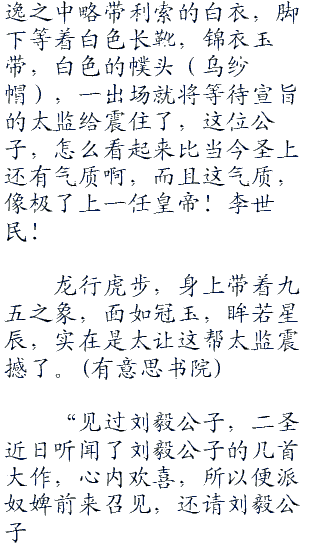 逸之中略带利索的白衣，脚
下等着白色长靴，锦衣玉
带，白色的幞头（乌纱
帽），一出场就将等待宣旨
的太监给震住了，这位公
子，怎么看起来比当今圣上
还有气质啊，而且这气质，
像极了上一任皇帝！李世
民！
龙行虎步，身上带着九
五之象，面如冠玉，眸若星
辰，实在是太让这帮太监震
撼了。(有意思书院)
“见过刘毅公子，二圣
近日听闻了刘毅公子的几首
大作，心内欢喜，所以便派
奴婢前来召见，还请刘毅公
子